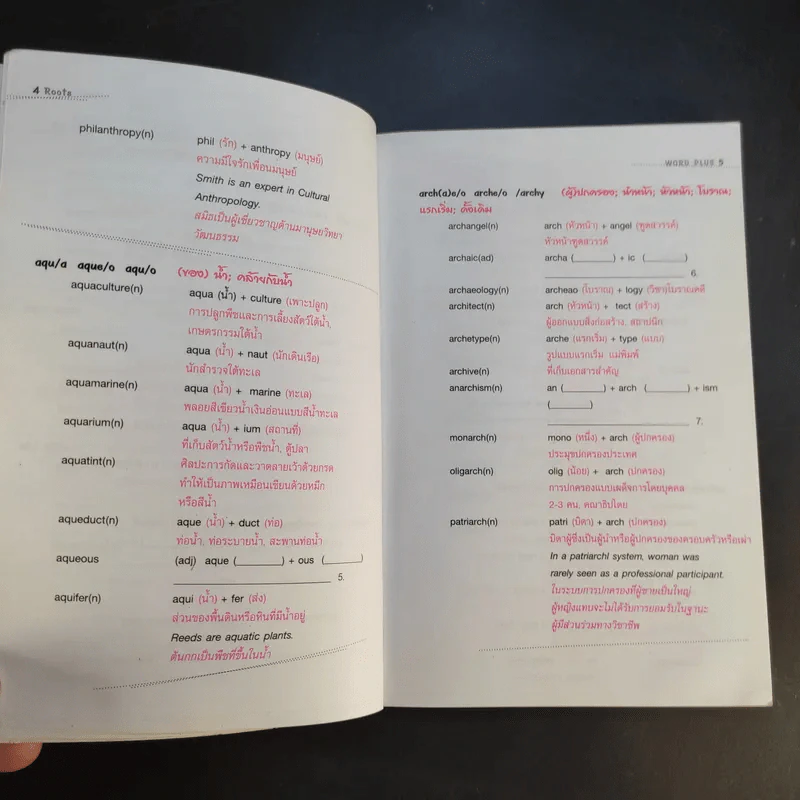 4 Roots
philanthropy(n) phil (รัก) + anthropy (มนุษย์)
ความมีใจรักเพื่อนมนุษย์
Smith is an expert in Cultural
Anthropology.
สมิธเป็นผู้เชี่ยวชาญด้านมานุษยวิทยา
วัฒนธรรม
aqu/a aque/o aqu/o (ของ) น้ำ; คล้ายกับน้ำ
aquaculture(n) aqua (น้ำ) + culture (เพาะปลูก)
การปลูกพืชและการเลี้ยงสัตว์ใต้น้ำ,
เกษตรกรรมใต้น้ำ
aquanaut(n) aqua (น้ำ) + naut (นักเดินเรือ)
นักสำรวจใต้ทะเล
aquamarine(n) aqua (น้ำ) + marine (ทะเล)
พลอยสีเขียวน้ำเงินอ่อนแบบสีน้ำทะเล
aquarium(n) aqua (น้ำ) + ium (สถานที่)
ที่เก็บสัตว์น้ำหรือพืชน้ำ, ตู้ปลา
aquatint(n) ศิลปะการกัดและวาดลายเว้าด้วยกรด
ทำให้เป็นภาพเหมือนเขียนด้วยหมึก
หรือสีน้ำ
aqueduct(n) aque (น้ำ) + duct (ท่อ)
ท่อน้ำ, ท่อระบายน้ำ, สะพานท่อน้ำ
aqueous (adj) aque (______) + ous (______)
______ 5.
aquifer(n) aqui (น้ำ) + fer (ส่ง)
ส่วนของพื้นดินหรือหินที่มีน้ำอยู่
Reeds are aquatic plants.
ต้นกกเป็นพืชที่ขึ้นในน้ำ
WORD PLUS 5
arch(a)e/o arche/o /archy (ผู้ปกครอง; นำหน้า; หัวหน้า; โบราณ;
แรกเริ่ม; ดั้งเดิม
archangel(n) arch (หัวหน้า) + angel (ทูตสวรรค์)
หัวหน้าทูตสวรรค์
archaic(ad) archa (______) + ic (______)
______ 6.
archaeology(n) archeao (โบราณ) + logy (วิชา)โบราณคดี
architect(n) arch (หัวหน้า) + tect (สร้าง)
ผู้ออกแบบสิ่งก่อสร้าง, สถาปนิก
archetype(n) arche (แรกเริ่ม) + type (แบบ)
รูปแบบแรกเริ่ม แม่พิมพ์
archive(n) ที่เก็บเอกสารสำคัญ
anarchism(n) an (______) + arch (______) + ism
(______)
______ 7.
monarch(n) mono (หนึ่ง) + arch (ผู้ปกครอง)
ประมุขปกครองประเทศ
oligarch(n) olig (น้อย) + arch (ปกครอง)
การปกครองแบบเผด็จการโดยบุคคล
2-3 คน, คณาธิปไตย
patriarch(n) patri (บิดา) + arch (ปกครอง)
บิดาผู้ซึ่งเป็นผู้นำหรือผู้ปกครองของครอบครัวหรือเผ่า
In a patriarchl system, woman was
rarely seen as a professional participant.
ในระบบการปกครองที่ผู้ชายเป็นใหญ่
ผู้หญิงแทบจะไม่ได้รับการยอมรับในฐานะ
ผู้มีส่วนร่วมทางวิชาชีพ